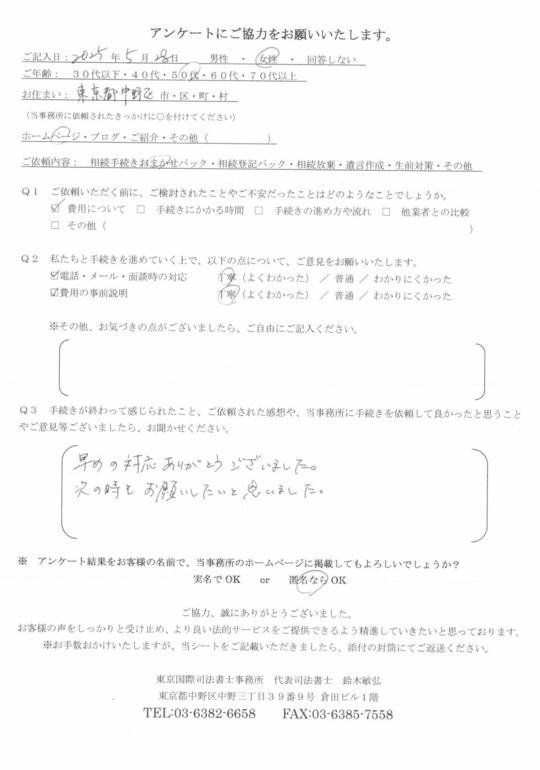 アンケートにご協力をお願いいたします。
ご記入日：2025年5月28日　男性 ・ 女性 ・ 回答しない
ご年齢：３０代以下・４０代・５０代・６０代・７０代以上
お住まい：東京都中野区 市・区・町・村
（当事務所に依頼されたきっかけに○を付けてください）
ホームページ・ブログ・ご紹介・その他（　　　）
ご依頼内容：　相続手続きおまかせパック・相続登記パック・相続放棄・遺言作成・生前対策・その他
Ｑ１　ご依頼いただく前に、ご検討されたことやご不安だったことはどのようなことでしょうか。
☑ 費用について　□ 手続きにかかる時間　□ 手続きの進め方や流れ　□ 他業者との比較
□ その他（　　　）
Ｑ２　私たちと手続きを進めていく上で、以下の点について、ご意見をお願いいたします。
☑電話・メール・面談時の対応　丁寧（よくわかった） ／ 普通 ／ わかりにくかった
☑費用の事前説明　丁寧（よくわかった） ／ 普通 ／ わかりにくかった
※その他、お気づきの点がございましたら、ご自由にご記入ください。
Ｑ３　手続きが終わって感じられたこと、ご依頼された感想や、当事務所に手続きを依頼して良かったと思うこと
やご意見等ございましたら、お聞かせください。
早めの対応ありがとうございました。
次の時もお願いしたいと思いました。
※　アンケート結果をお客様の名前で、当事務所のホームページに掲載してもよろしいでしょうか？
実名でOK　or　匿名ならOK
ご協力、誠にありがとうございました。
お客様の声をしっかりと受け止め、より良い法的サービスをご提供できるよう精進していきたいと思っております。
※お手数おかけいたしますが、当シートをご記載いただきましたら、添付の封筒にてご返送ください。
東京国際司法書士事務所　代表司法書士　鈴木敏弘
東京都中野区中野三丁目３９番９号 倉田ビル１階
TEL:03-6382-6658　FAX:03-6385-7558